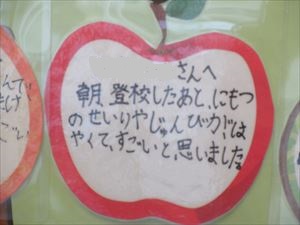 さんへ
朝、登校したあと、にもつ
のせいりやじゅんびがは
やくて、すごいと思いました。